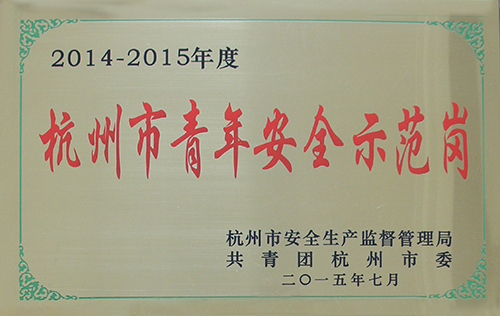 2014-2015年度
杭州市青年安全示范岗
杭州市安全生产监督管理局
共青团杭州市委
二〇一五年七月